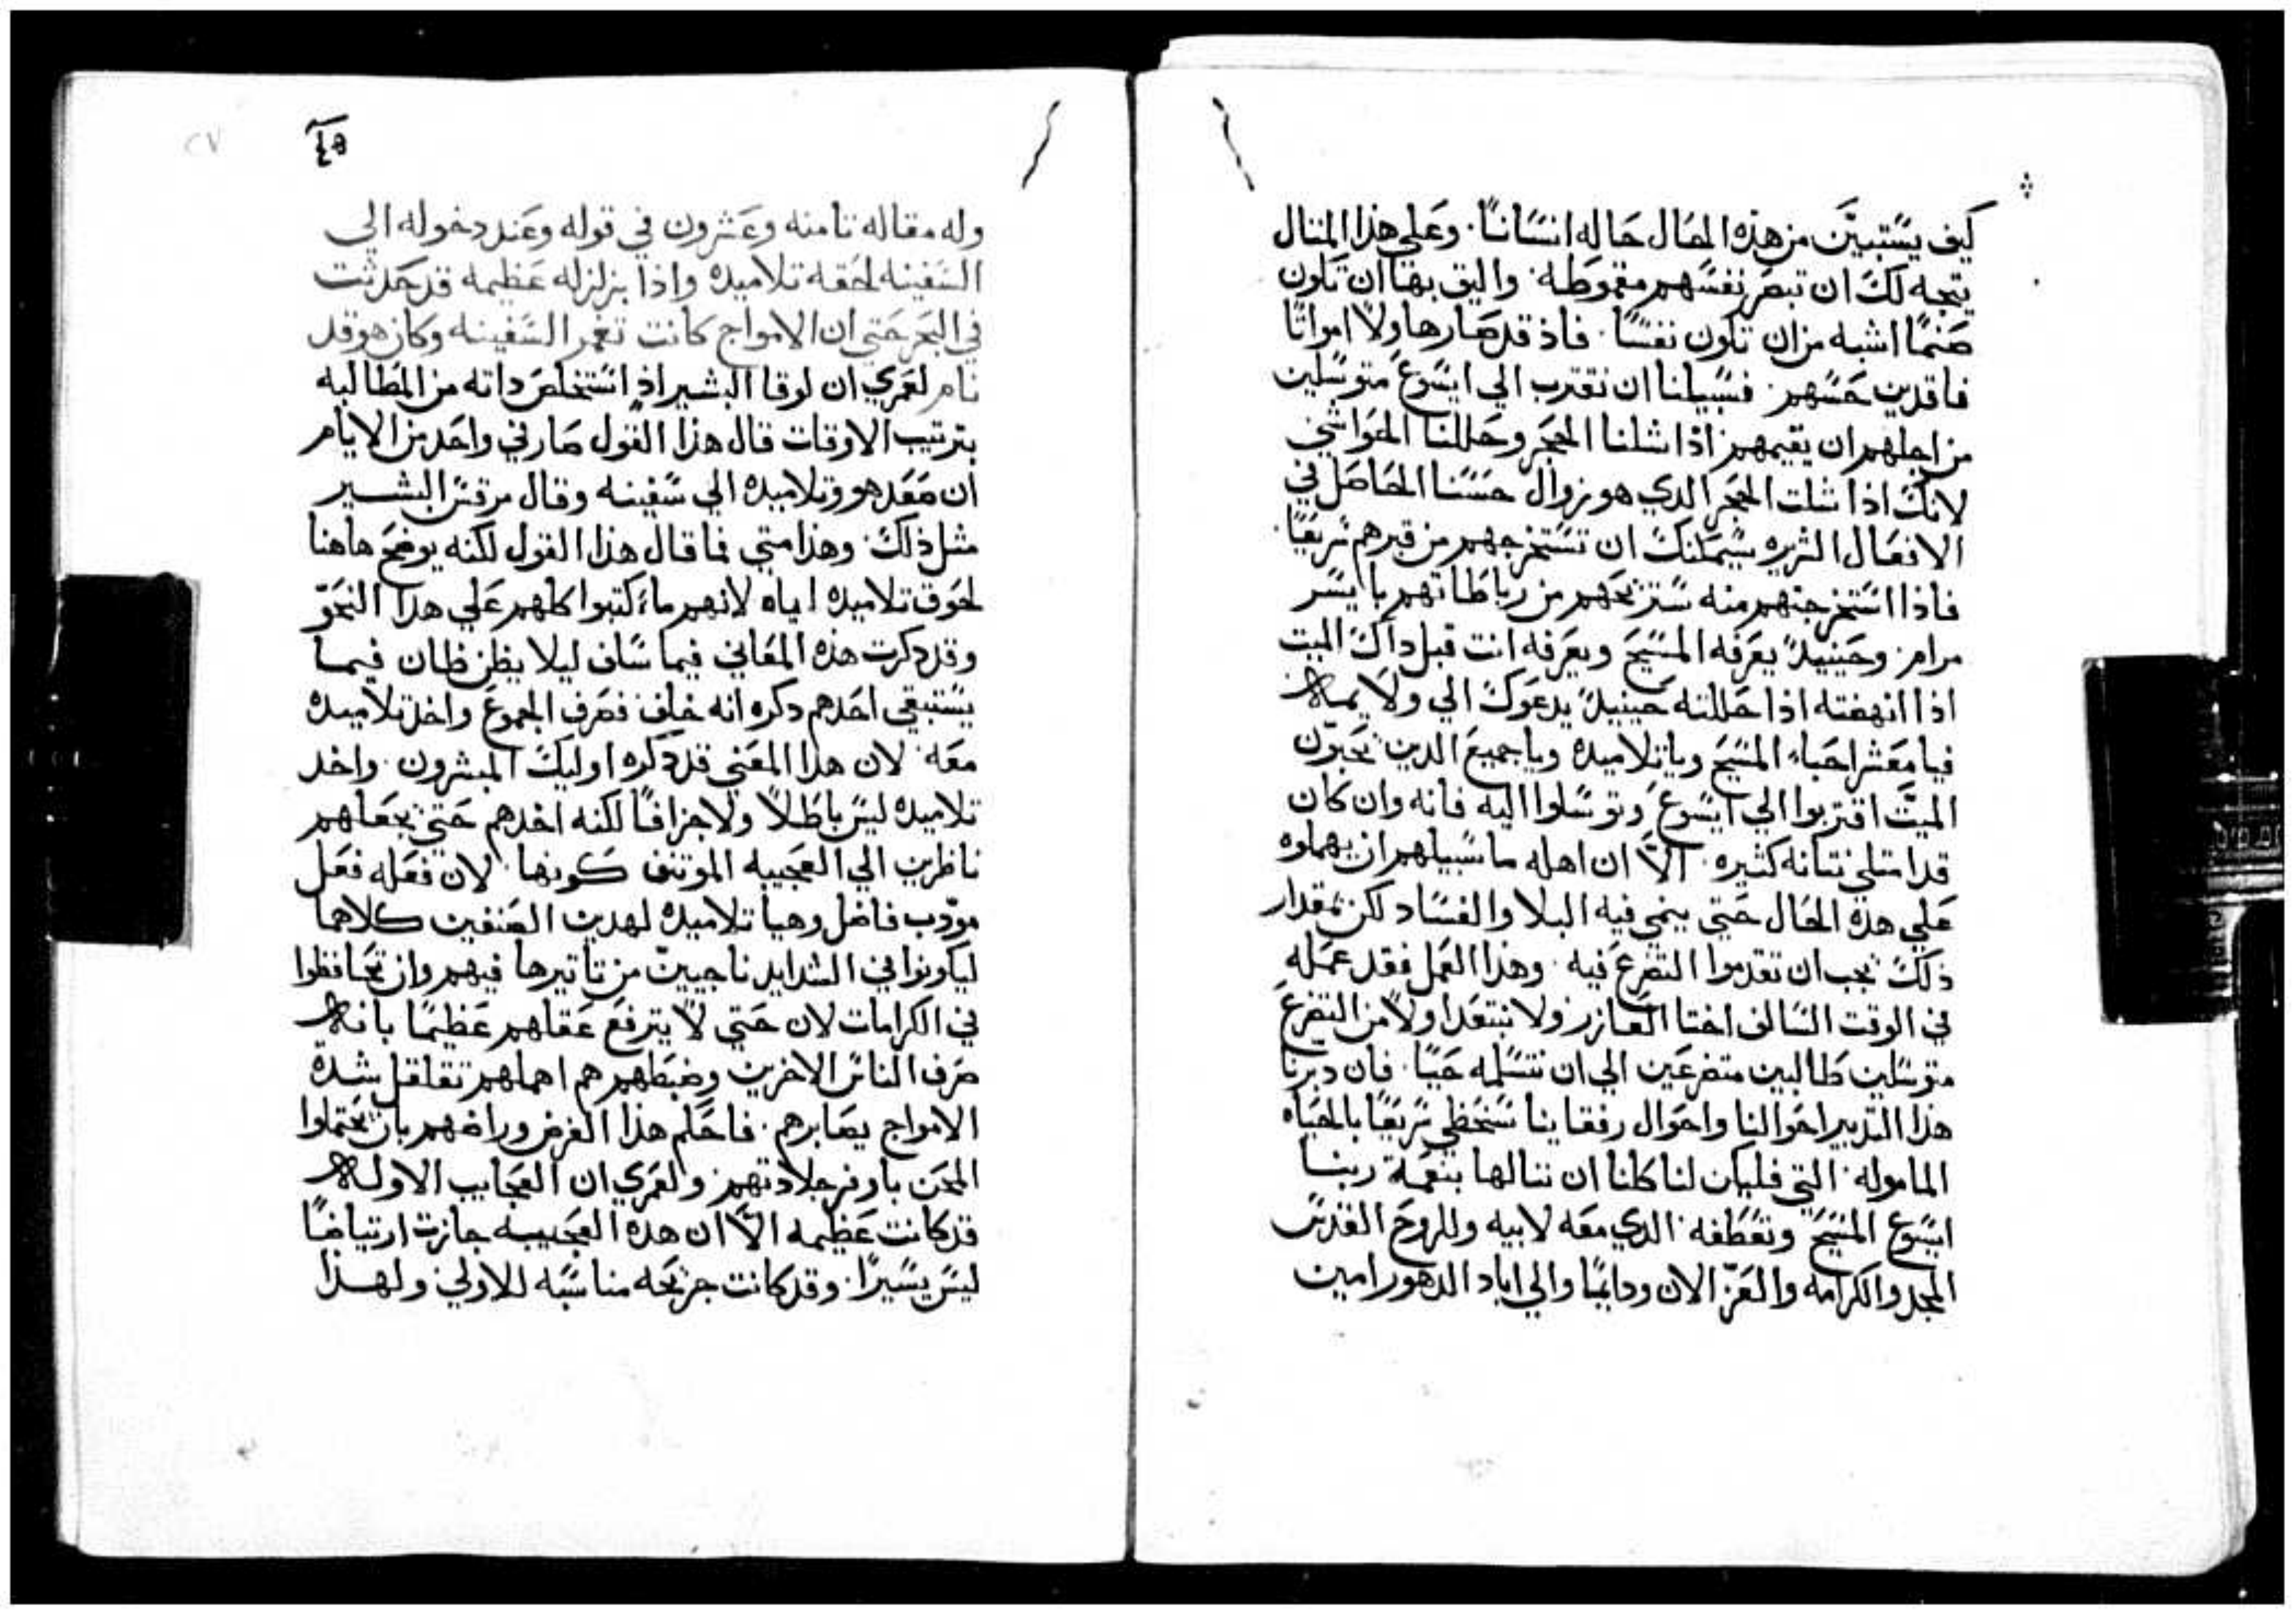 كيف يستبين من هذه الحال حاله انسانًا. وعلي هذا المثال
يتجه لك ان تبصر نفسهم مقموطه. واليق بها ان تكون
صنمًا اشبه من ان تكون نفسًا. فاذ قد صارها ولا امواتًا
فاقدين حسهم. فسبيلنا ان نقترب الي ايسوع متوسلين
من اجلهم ان يقيمهم اذا شلنا الحجر وحللنا الحواشي
لانك اذا شلت الحجر الدي هو زوال حسنا الحاصل في
الافعال الشريره سيمكنك ان تستخرجهم من قبرهم سريعًا.
فاذا استخرجتهم منه ستريحهم من رباطاتهم بايسر
مرام. وحينيدً يعرفه المسيح ويعرفه انت قبل داك الميت
اذا انهضته اذا حللته حينيدً يدعوك الي ولايمه
فيا معشر احباء المسيح ويا تلاميده ويا جميع الدين تحبون
الميت اقتربوا الي ايسوع وتوسلوا اليه فانه وان كان
قد امتلي نتانه كثيره. الا ان اهله ما سبيلهم ان يهملوه
علي هده الحال حتي ينمي فيه البلا والفساد لكن بمقدار
ذلك يجب ان تقدموا التضرع فيه. وهذا العمل فقد عمله
في الوقت السالف اختا العازر ولا نبتعد اولاً من التضرع
متوسلين طالبين متضرعين الي ان نتسلمه حيًا. فان دبرنا
هذا التدبير احوالنا واحوال رفقاينا سنحظي سريعًا بالحياه
الماموله. التي فليكن لنا كلنا ان ننالها بنعمة ربنا
ايسوع المسيح وتعطفه. الدي معه لابيه وللروح القدس
المجد والكرامه والعز الان ودايمًا والي اباد الدهور امين
وله مقاله ثامنه وعشرون في قوله وعند دخوله الي
السفينه لحقه تلاميده واذا بزلزله عظيمه قد حدثت
في البحر حتي ان الامواج كانت تغمر السفينه وكان هو قد
نام لعمري ان لوقا البشير اذ استخلص داته من المطالبه
بترتيب الاوقات قال هذا القول صار في واحد من الايام
ان صعد هو وتلاميده الي سفينه وقال مرقس البشير
مثل ذلك. وهذا متي فما قال هذا القول لكنه يوضح هاهنا
لحوق تلاميده اياه لانهم ما كتبوا كلهم علي هدا النحو
وقد دكرت هذه المعاني فيما سلف ليلا يظن ظان فيما
يستبقي احدهم دكره انه خالف فصرف الجموع واخذ تلاميده
معه. لان هدا المعني قد دكره اوليك المبشرون. واخد
تلاميده ليس باطلاً ولا جزافًا لكنه اخدهم حتي يجعلهم
ناظرين الي العجيبه الموتنف كونها. لان فعله فعل
مودب فاضل وهيا تلاميده لهدين الصنفين كلاهما
ليكونوا في الشدايد ناجيين من تاتيرها فيهم وان تحافظوا
في الكرامات لان حتي لا يترفع عقلهم عظيمًا بانه
صرف الناس الاخرين وضبطهم هم اهملهم تقلقل شدة
الامواج يصابرهم. فاحكم هذا الغرض وراضهم بان يحتملوا
المحن باوفر جلادتهم ولعمري ان العجايب الاوله
قد كانت عظيمه الا ان هده العجيبه حازت ارتياضًا
ليس يسيرًا. وقد كانت جريحه مناسبه للاولي. ولهذا